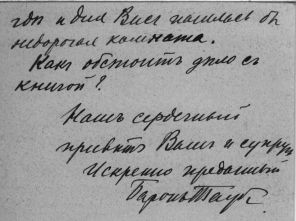 гдѣ и для Васъ нашлась бы
недорогая комната.
Какъ обстоитъ дѣло съ
книгой?
Нашъ сердечный
привѣтъ Вамъ и супругѣ
Искренно преданный
Баронъ Таубе